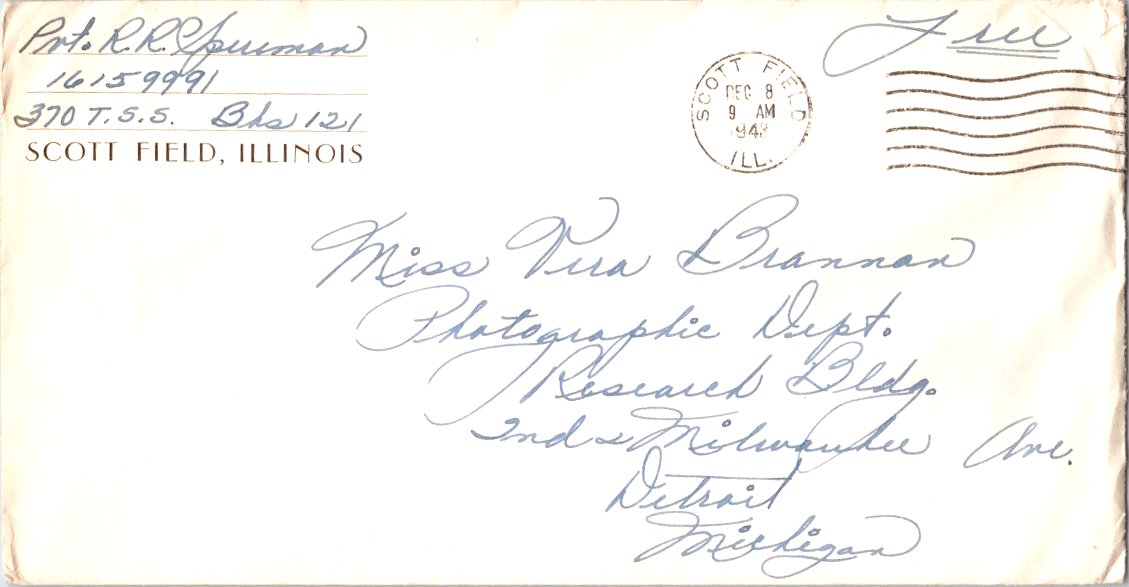 Pvt. R. R. Spurman
16159991
370 T.S.S. Bks 121
SCOTT FIELD, ILLINOIS
Free
SCOTT FIELD
DEC 8
9 AM
1943
ILL.
Miss Vera Brannan
Photographic Dept.
Research Bldg.
2nd & Milwaukee Ave.
Detroit
Michigan